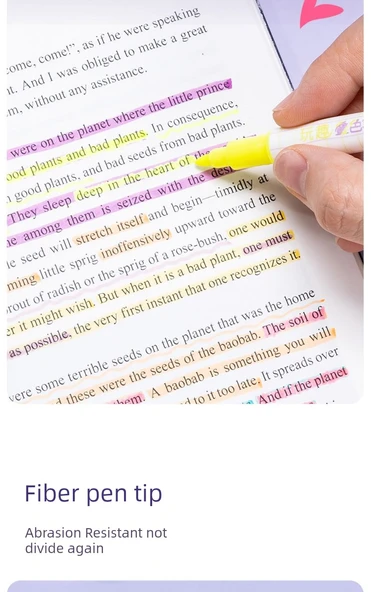 come, come!", as if he were speaking
t. And I was obliged to make a great
m, without any assistance.
were on the planet where the little prince
ood plants and bad plants. In consequence,
good plants, and bad seeds from bad plants.
They sleep deep in the heart of the
e among them is seized with the desi
e seed will stretch itself and begin—timidly at
ming little sprig inoffensively upward toward the
rout of radish or the sprig of a rose-bush, one would
er it might wish. But when it is a bad plant, one must
as possible, the very first instant that one recognizes it.
were some terrible seeds on the planet that was the home
d these were the seeds of the baobab. The soil of
them. A baobab is something you will
d to it too late. It spreads over
And if the planet
Fiber pen tip
Abrasion Resistant not
divide again